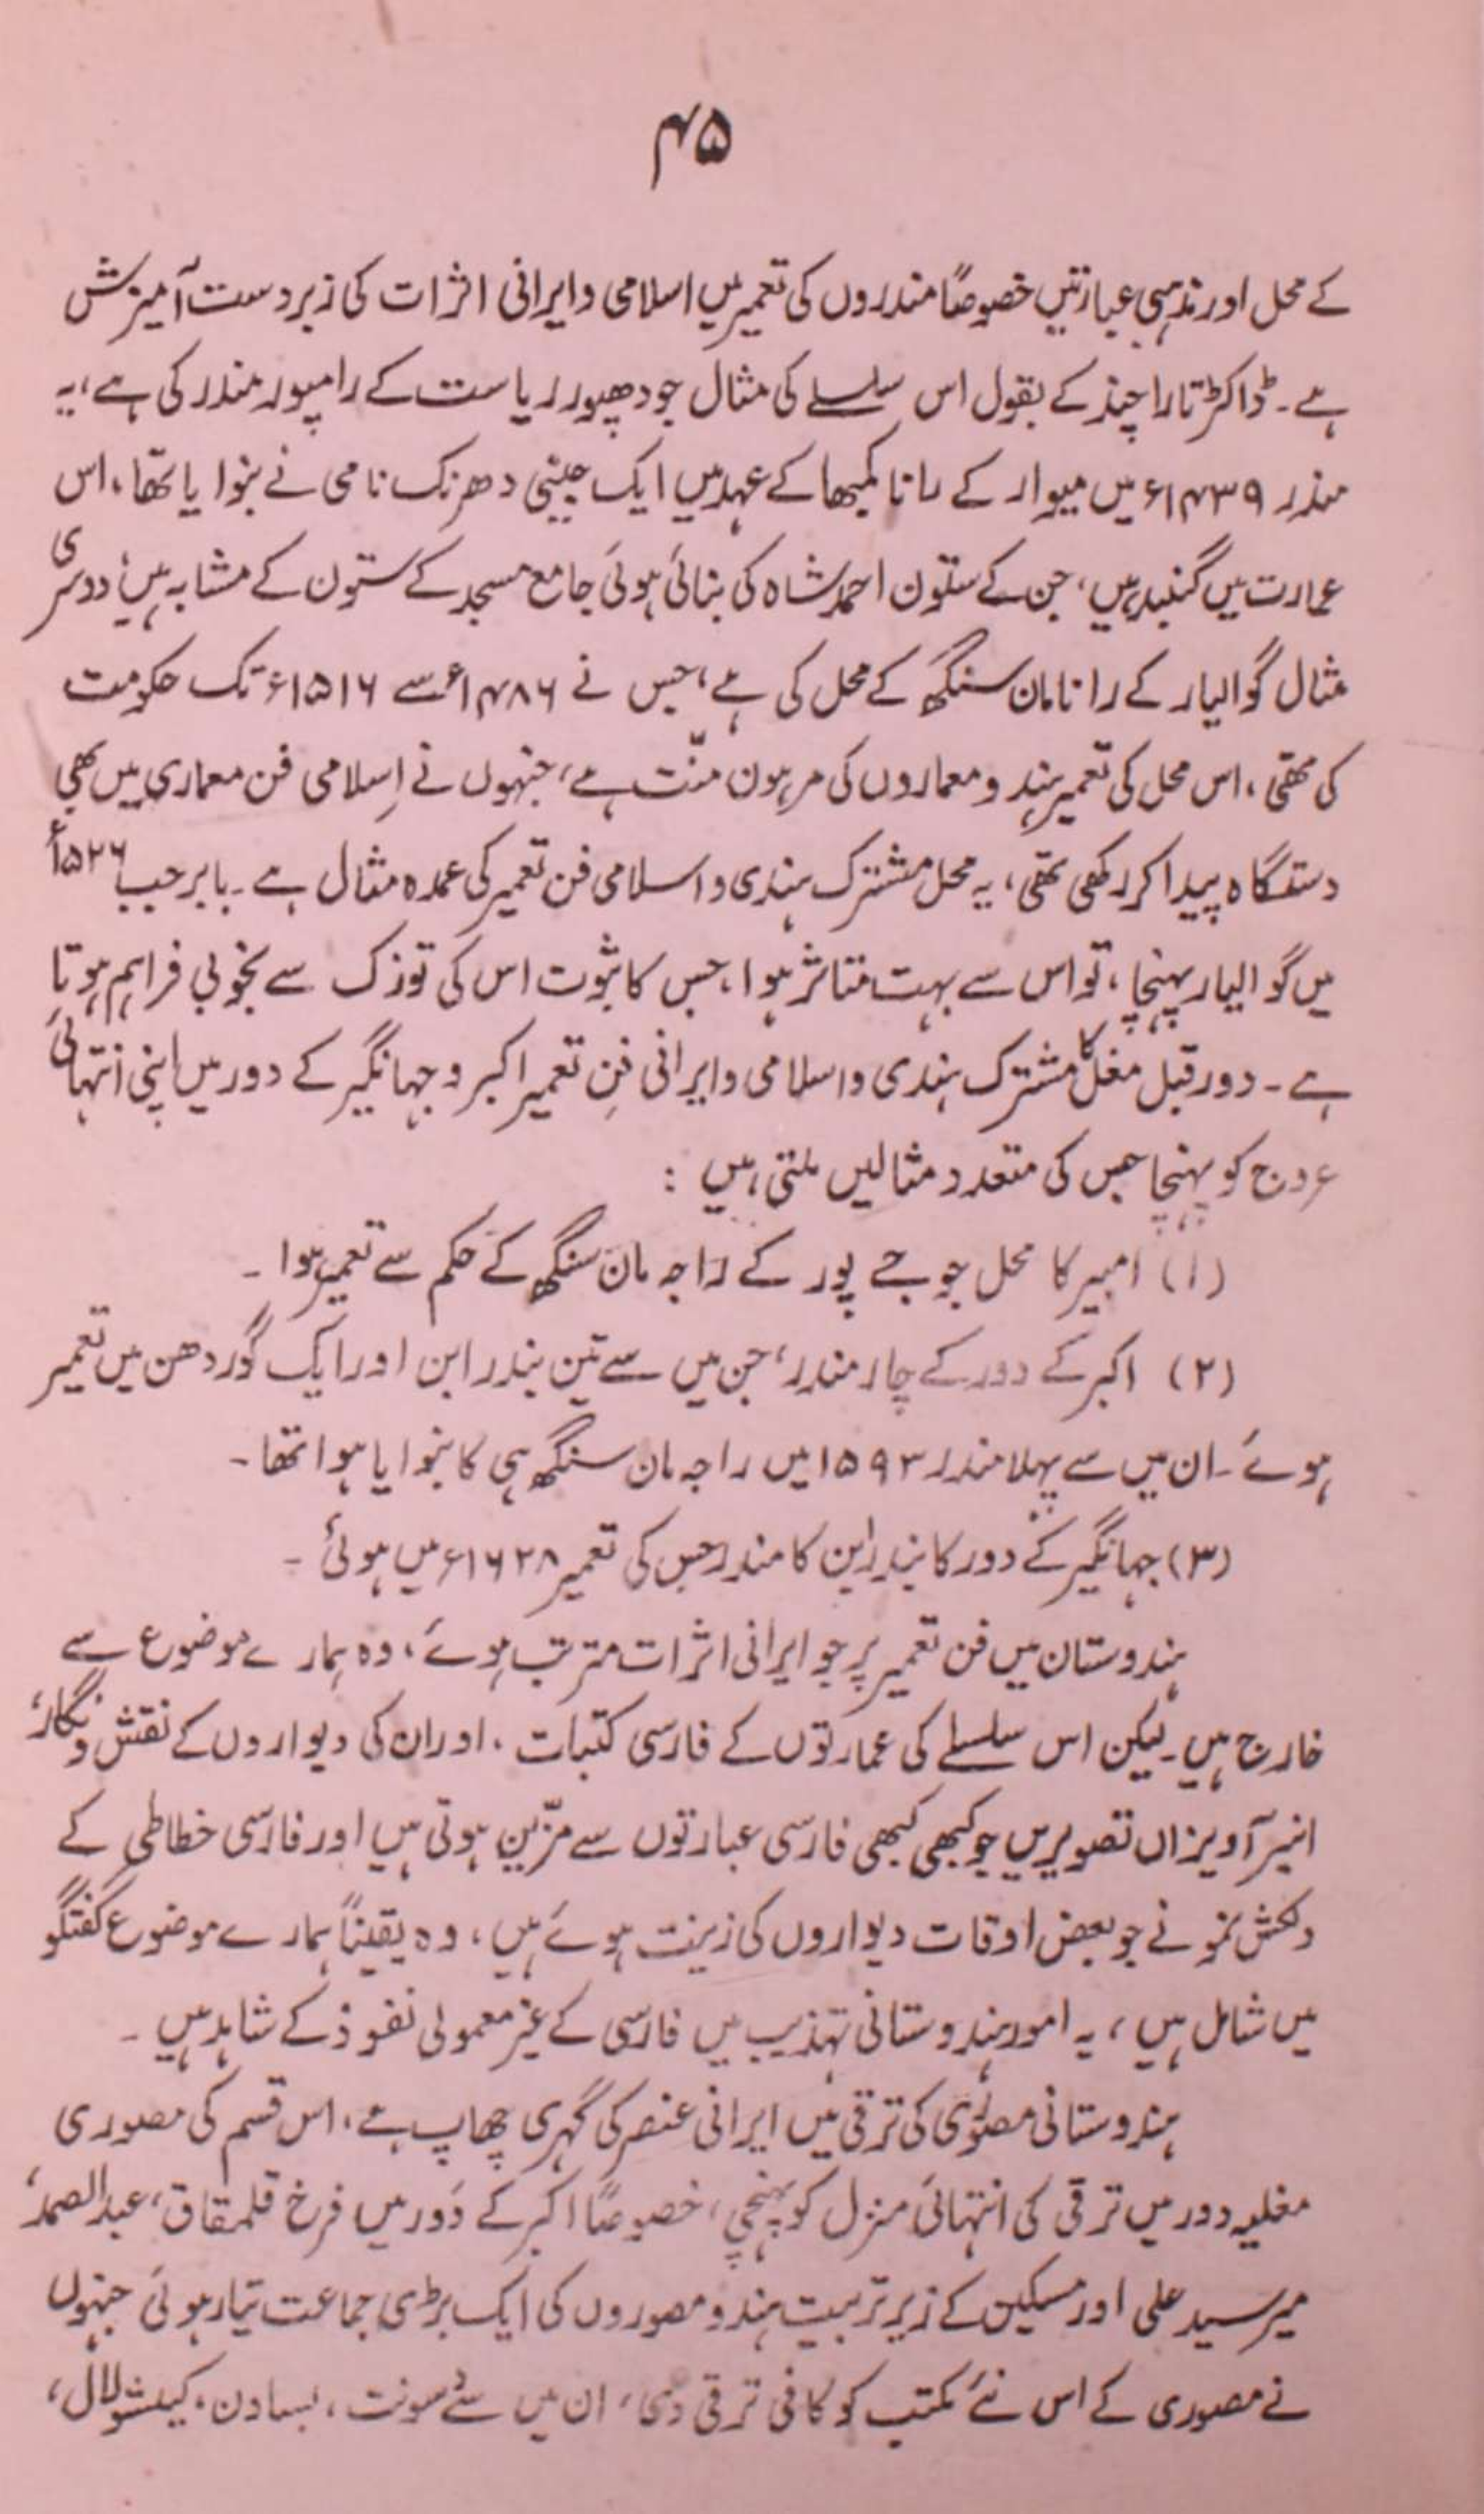 ۴۵
کے محل اور مذہبی عبارتیں خصوصاً مندروں کی تعمیر میں اسلامی و ایرانی اثرات کی زبردست آمیزش
ہے۔ ڈاکٹر تارا چند کے بقول اس سلسلے کی مثال جودھپور ریاست کے رامپور مندر کی ہے، یہ
مندر ۱۴۳۹ء میں میوار کے رانا کمبھا کے عہد میں ایک جینی دھرنک نامی نے بنوایا تھا، اس
عمارت میں گنبد ہیں، جن کے ستون احمد شاہ کی بنائی ہوئی جامع مسجد کے ستون کے مشابہ ہیں، دوسری
مثال گوالیار کے رانا مان سنگھ کے محل کی ہے، جس نے ۱۴۸۶ء سے ۱۵۱۶ء تک حکومت
کی تھی، اس محل کی تعمیر ہندو معماروں کی مرہون منّت ہے، جنہوں نے اِسلامی فن معماری میں بھی
دستگاہ پیدا کر رکھی تھی، یہ محل مشترک ہندی و اسلامی فن تعمیر کی عمدہ مثال ہے۔ بابر جب ۱۵۲۶ء
میں گوالیار پہنچا، تو اس سے بہت متاثر ہوا، جس کا ثبوت اس کی توزک سے بخوبی فراہم ہوتا
ہے۔ دور قبل مغل کا مشترک ہندی و اسلامی و ایرانی فنِ تعمیر اکبر و جہانگیر کے دور میں اپنی انتہائی
عروج کو پہنچا جس کی متعدد مثالیں ملتی ہیں :
(۱) امبیر کا محل جو جے پور کے راجہ مان سنگھ کے حکم سے تعمیر ہوا۔
(۲) اکبر کے دور کے چار مندر، جن میں سے تین بندرابن اور ایک گوردھن میں تعمیر
ہوئے۔ ان میں سے پہلا مندر ۱۵۹۳ میں راجہ مان سنگھ ہی کا بنوایا ہوا تھا۔
(۳) جہانگیر کے دور کا بندرابن کا مندر جس کی تعمیر ۱۶۲۸ء میں ہوئی۔
ہندوستان میں فن تعمیر پر جو ایرانی اثرات مترتب ہوئے، وہ ہمارے موضوع سے
خارج ہیں۔ لیکن اس سلسلے کی عمارتوں کے فارسی کتبات، اور ان کی دیواروں کے نقش و نگار،
انپر آویزاں تصویریں جو کبھی کبھی فارسی عبارتوں سے مزّین ہوتی ہیں اور فارسی خطاطی کے
دلکش نمونے جو بعض اوقات دیواروں کی زینت ہوئے ہیں، وہ یقیناً ہمارے موضوع گفتگو
میں شامل ہیں، یہ امور ہندوستانی تہذیب میں فارسی کے غیر معمولی نفوذ کے شاہد ہیں۔
ہندوستانی مصوّری کی ترقی میں ایرانی عنصر کی گہری چھاپ ہے، اس قسم کی مصوری
مغلیہ دور میں ترقی کی انتہائی منزل کو پہنچی، خصوصاً اکبر کے دَور میں فرخ قلمقاق، عبد الصمد،
میر سید علی اور مسکین کے زیر تربیت ہندو مصوروں کی ایک بڑی جماعت تیار ہوئی جنہوں
نے مصوری کے اس نئے مکتب کو کافی ترقی دی، ان میں سے سونت، بساون، کیشو لال،